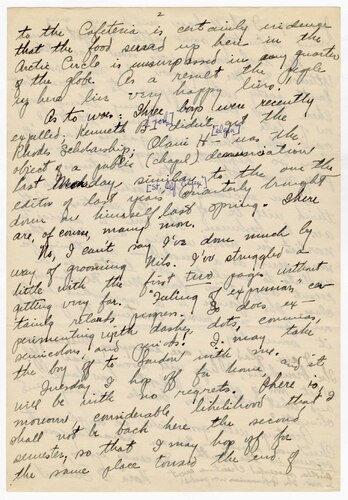 2
to the Cafeteria is certainly evidence
that the food served up here in the
Arctic Circle is unsurpassed in any quarter
of the globe. As a result the people
up here live very happy lives."
As to woes: Three boys were recently
expelled; Kenneth B didn't get the
Rhodes Scholarship; Olaine H- was the
object of a public (chapel) denunciation
last Monday, similar to the one the
[St. Olaf Coll.]
editor of last year's Quarterly brought
down on himself last spring. There
are, of course, many more.
No, I can't say I've done much by
way of grooming Nils. I've struggled a
little with the first two pages without
getting very far. "Feeling of expression" cer-
tainly retards progress. So does ex-
perimenting with dashes, dots, commas,
semicolons, and periods. I may take
the boy to London with me.
Tuesday I hop off for home, and it
will be with no regrets. There is,
moreover, considerable likelihood that I
shall not be back here the second
semester, so that I may hop off for
the same place toward the end of